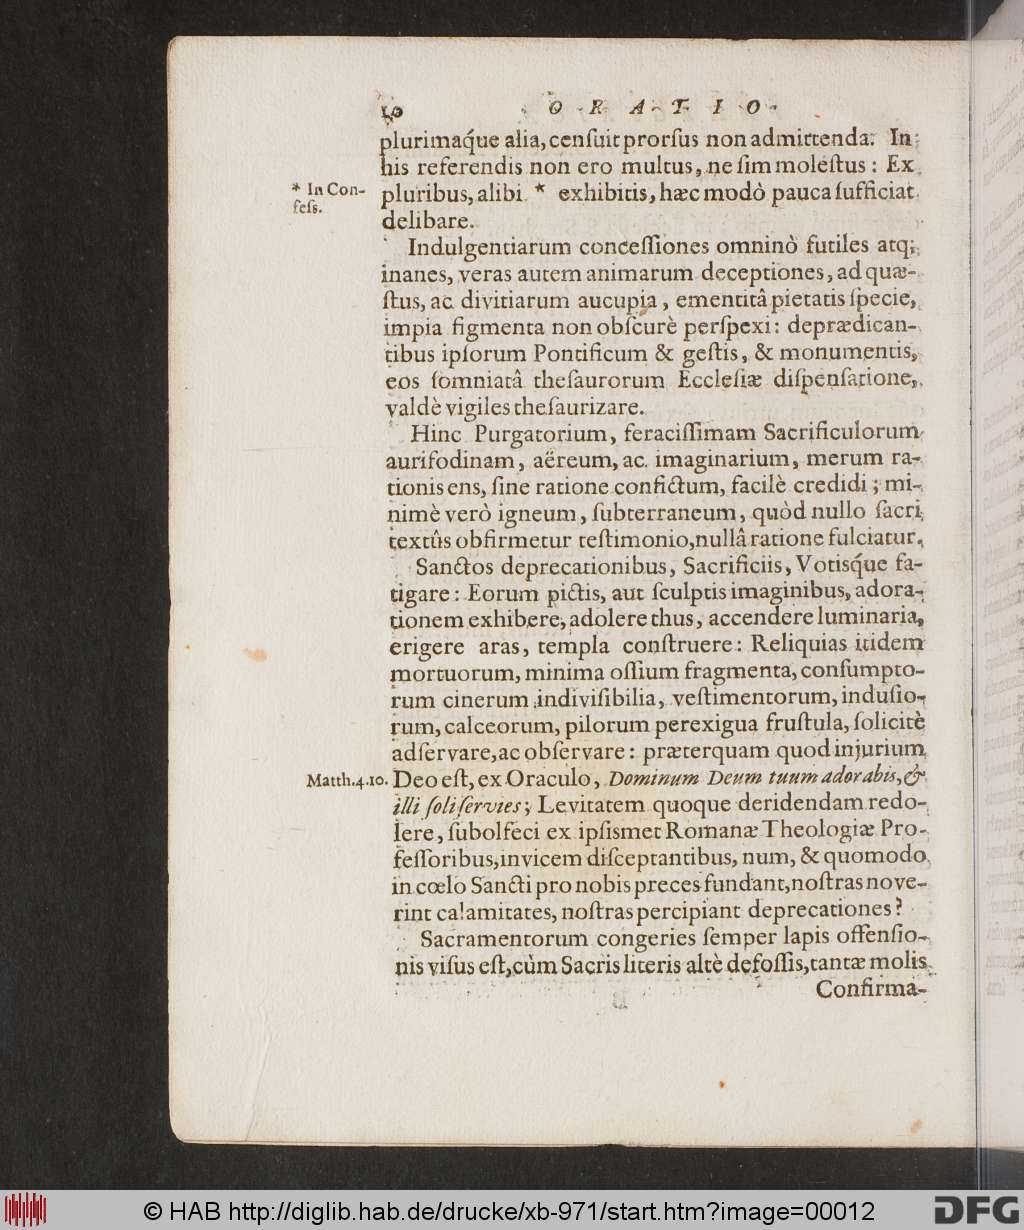 10 ORATIO
plurimaq́ue alia, cenſuit prorſus non admittenda: In
his referendis non ero multus, ne ſim moleſtus: Ex
* In Con-
feſs.
pluribus, alibi * exhibitis, hæc modò pauca ſufficiat
delibare.
Indulgentiarum conceſſiones omninò futiles atq;
inanes, veras autem animarum deceptiones, ad quæ-
ſtus, ac divitiarum aucupia, ementitâ pietatis ſpecie,
impia figmenta non obſcurè perſpexi: deprædican-
tibus ipſorum Pontificum & geſtis, & monumentis,
eos ſomniatâ theſaurorum Eccleſiæ diſpenſatione,
valdè vigiles theſaurizare.
Hinc Purgatorium, feraciſſimam Sacrificulorum
aurifodinam, aëreum, ac imaginarium, merum ra-
tionis ens, ſine ratione confictum, facilè credidi; mi-
nimè verò igneum, ſubterraneum, quòd nullo ſacri
textûs obfirmetur teſtimonio, nullâ ratione fulciatur.
Sanctos deprecationibus, Sacrificiis, Votisq́ue fa-
tigare: Eorum pictis, aut ſculptis imaginibus, adora-
tionem exhibere, adolere thus, accendere luminaria,
erigere aras, templa conſtruere: Reliquias itidem
mortuorum, minima oſſium fragmenta, conſumpto-
rum cinerum indiviſibilia, veſtimentorum, induſio-
rum, calceorum, pilorum perexigua fruſtula, ſolicitè
adſervare, ac obſervare: præterquam quod injurium
Matth. 4. 10. Deo eſt, ex Oraculo, Dominum Deum tuum adorabis, &
illi ſoli ſervies; Levitatem quoque deridendam redo-
lere, ſubolfeci ex ipſismet Romanæ Theologiæ Pro-
feſſoribus, invicem diſceptantibus, num, & quomodo
in cœlo Sancti pro nobis preces fundant, noſtras nove-
rint calamitates, noſtras percipiant deprecationes?
Sacramentorum congeries ſemper lapis offenſio-
nis viſus eſt, cùm Sacris literis altè defoſſis, tantæ molis
Confirma-
© HAB http://diglib.hab.de/drucke/xb-971/start.htm?image=00012
DFG